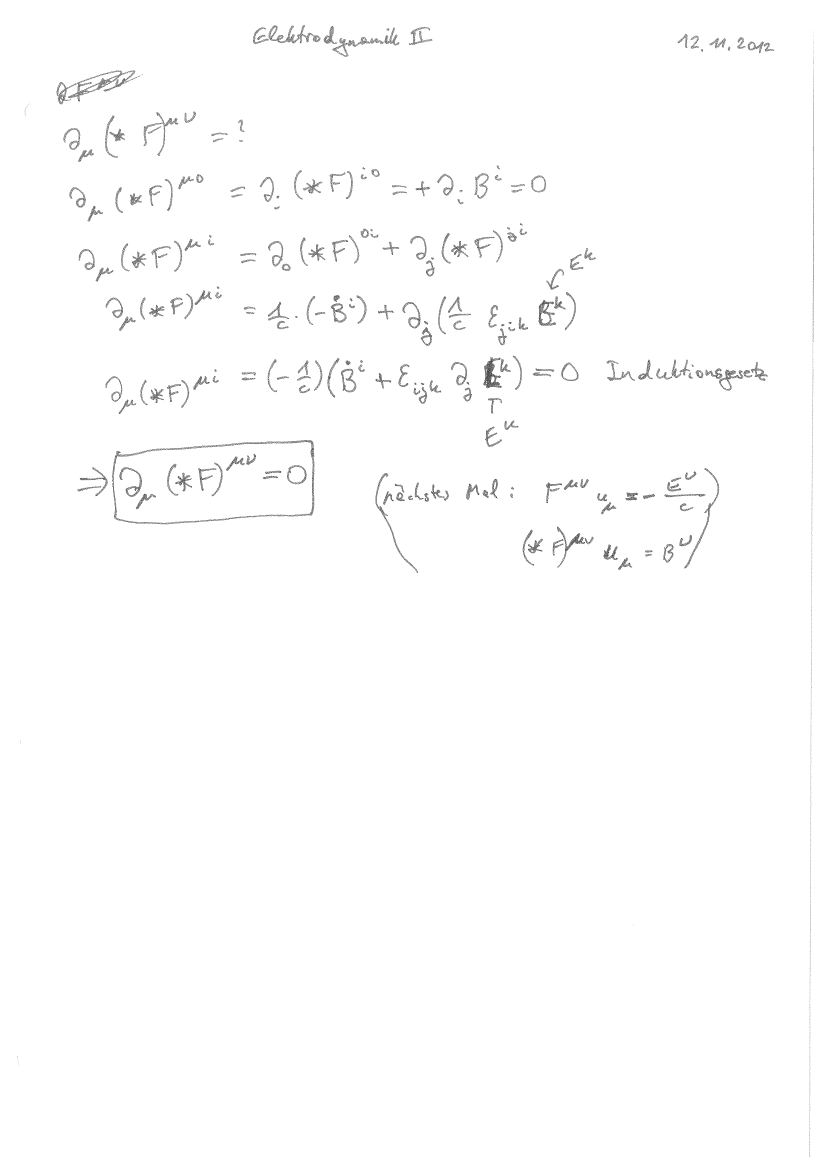 Elektrodynamik II
12.11.2012
∂_μ (* F)^{μν} = ?
∂_μ (*F)^{μ0} = ∂_i (*F)^{i0} = + ∂_i B^i = 0
∂_μ (*F)^{μi} = ∂_0 (*F)^{0i} + ∂_j (*F)^{ji}
E^k
∂_μ (*F)^{μi} = 1/c · (-Ḃ^i) + ∂_j (1/c ε_{jik} E^k)
∂_μ (*F)^{μi} = (-1/c) (Ḃ^i + ε_{ijk} ∂_j E^k) = 0 Induktionsgesetz
E^k
⇒ ∂_μ (*F)^{μν} = 0
(nächstes Mal: F^{μν} u_μ = - E^ν/c)
(*F)^{μν} u_μ = B^ν